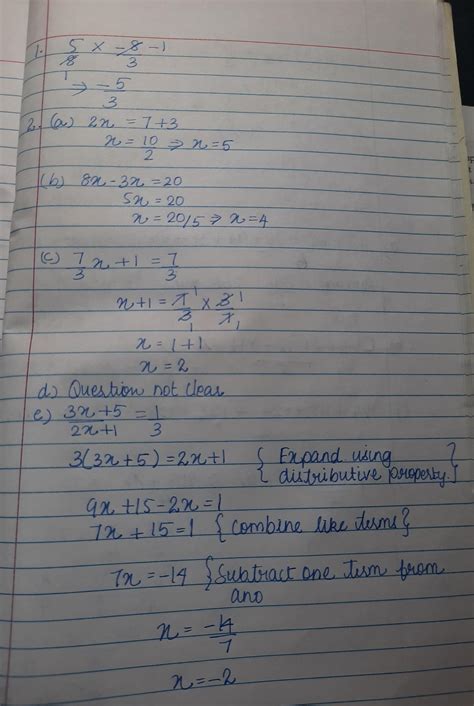 1. 5/8 × -8/3 -1
1
→ -5/3
2. (a) 2x = 7+3
x = 10/2 ⇒ x=5
(b) 8x-3x=20
5x=20
x = 20/5 ⇒ x=4
(c) 7/3 x +1 = 7/3
x+1 = 7/3 1 × 3/7 1
1
x = 1+1
x = 2
d) Question not clear
e) 3x+5/2x+1 = 1/3
3(3x+5)=2x+1 { Expand using
distributive property.}
9x+15-2x=1
7x+15=1 {Combine like terms}
7x=-14 {Subtract one term from
ano
x = -14/7
x=-2